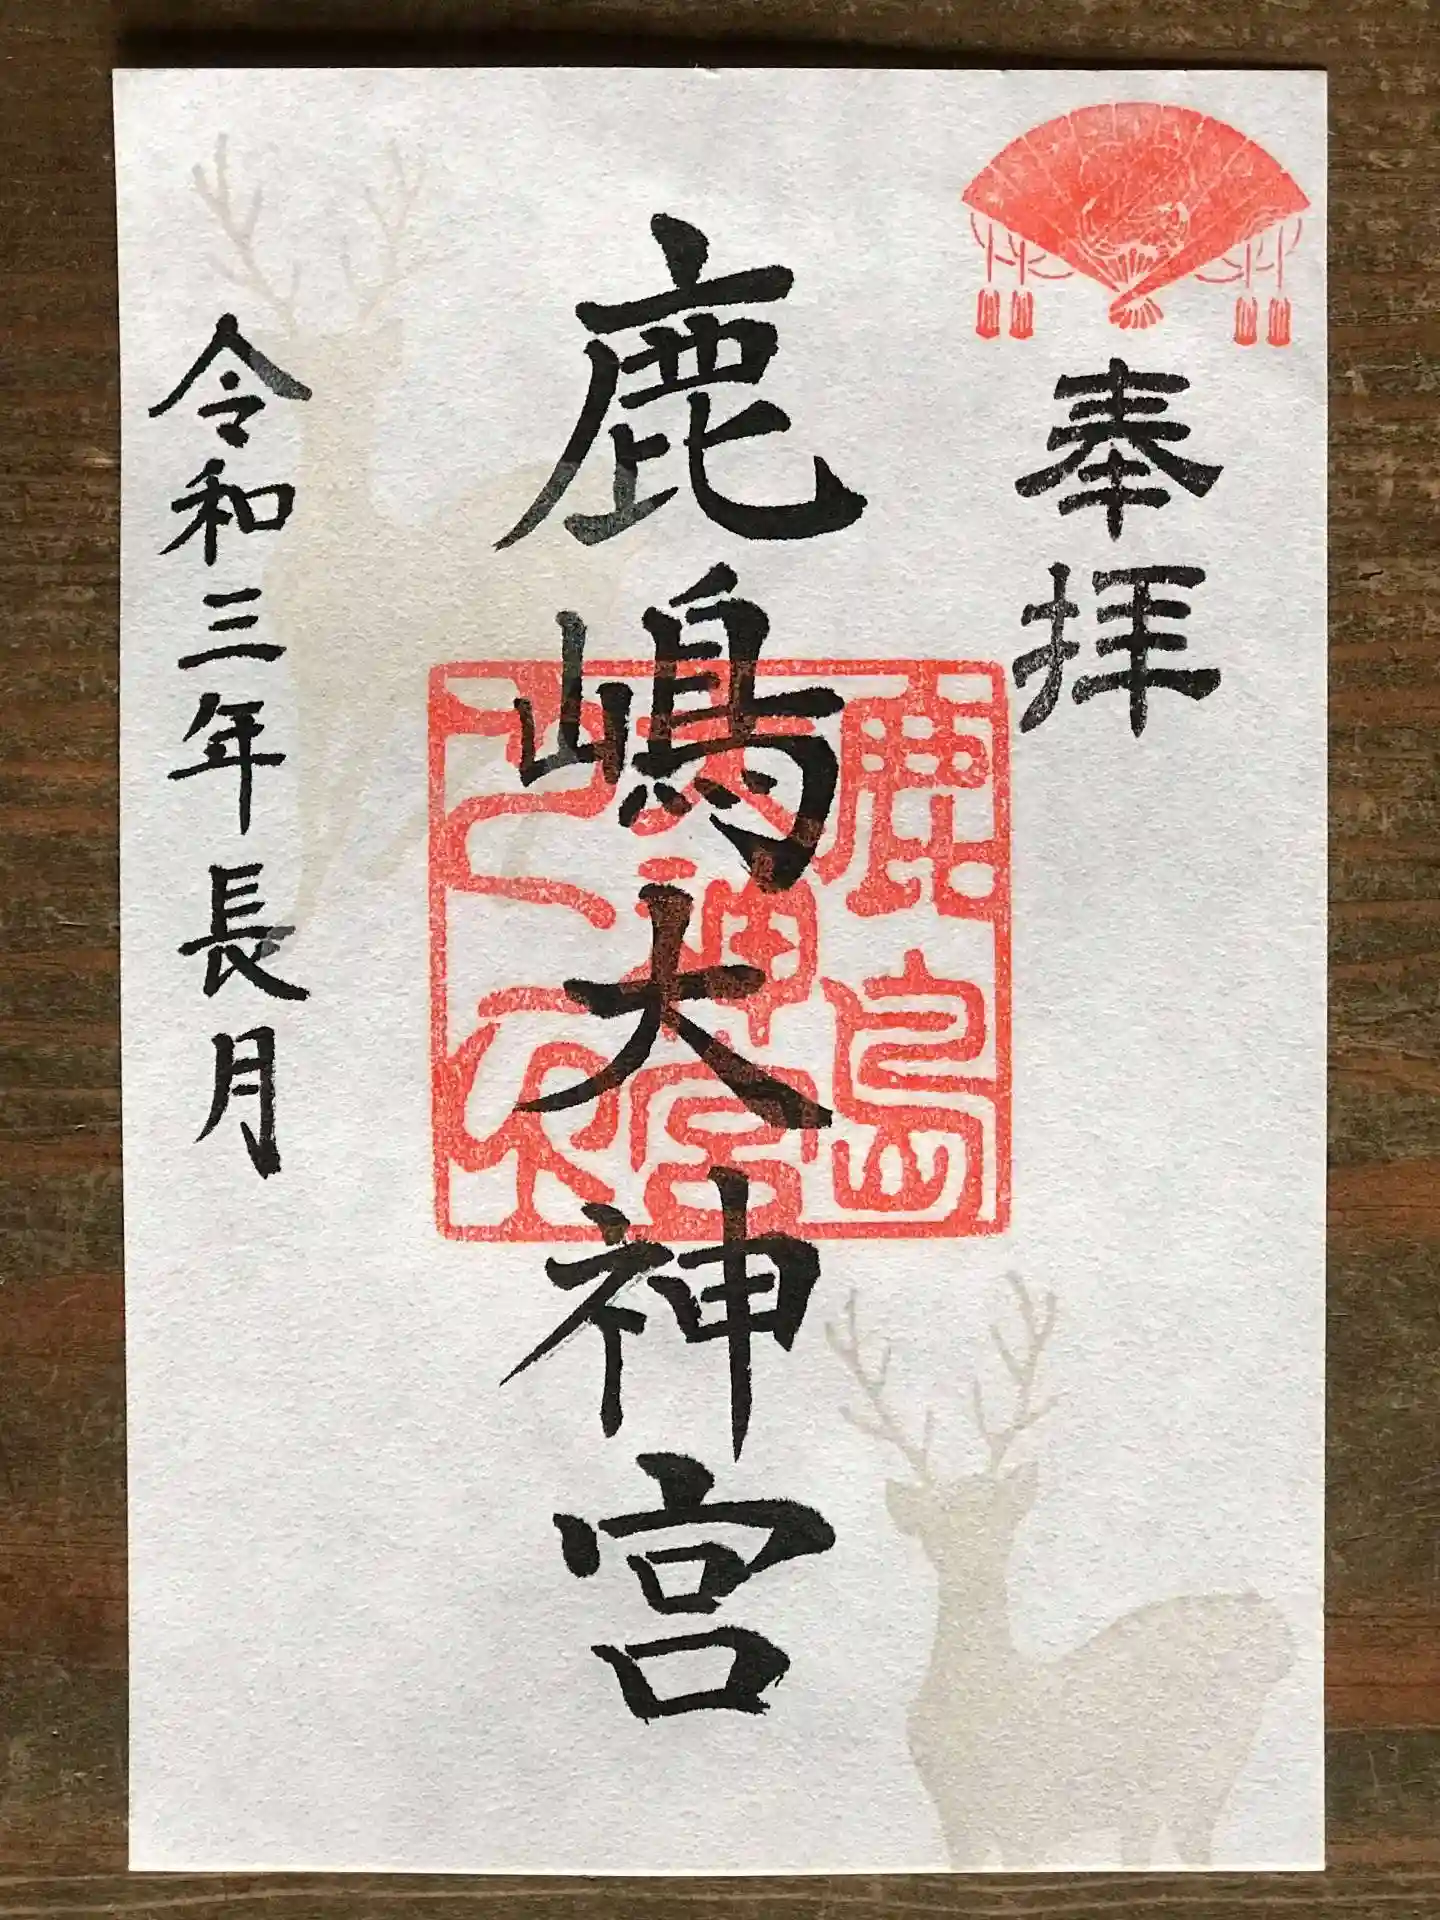 奉拝
鹿嶋大神宮
鹿島
大神宮
之印
令和三年長月